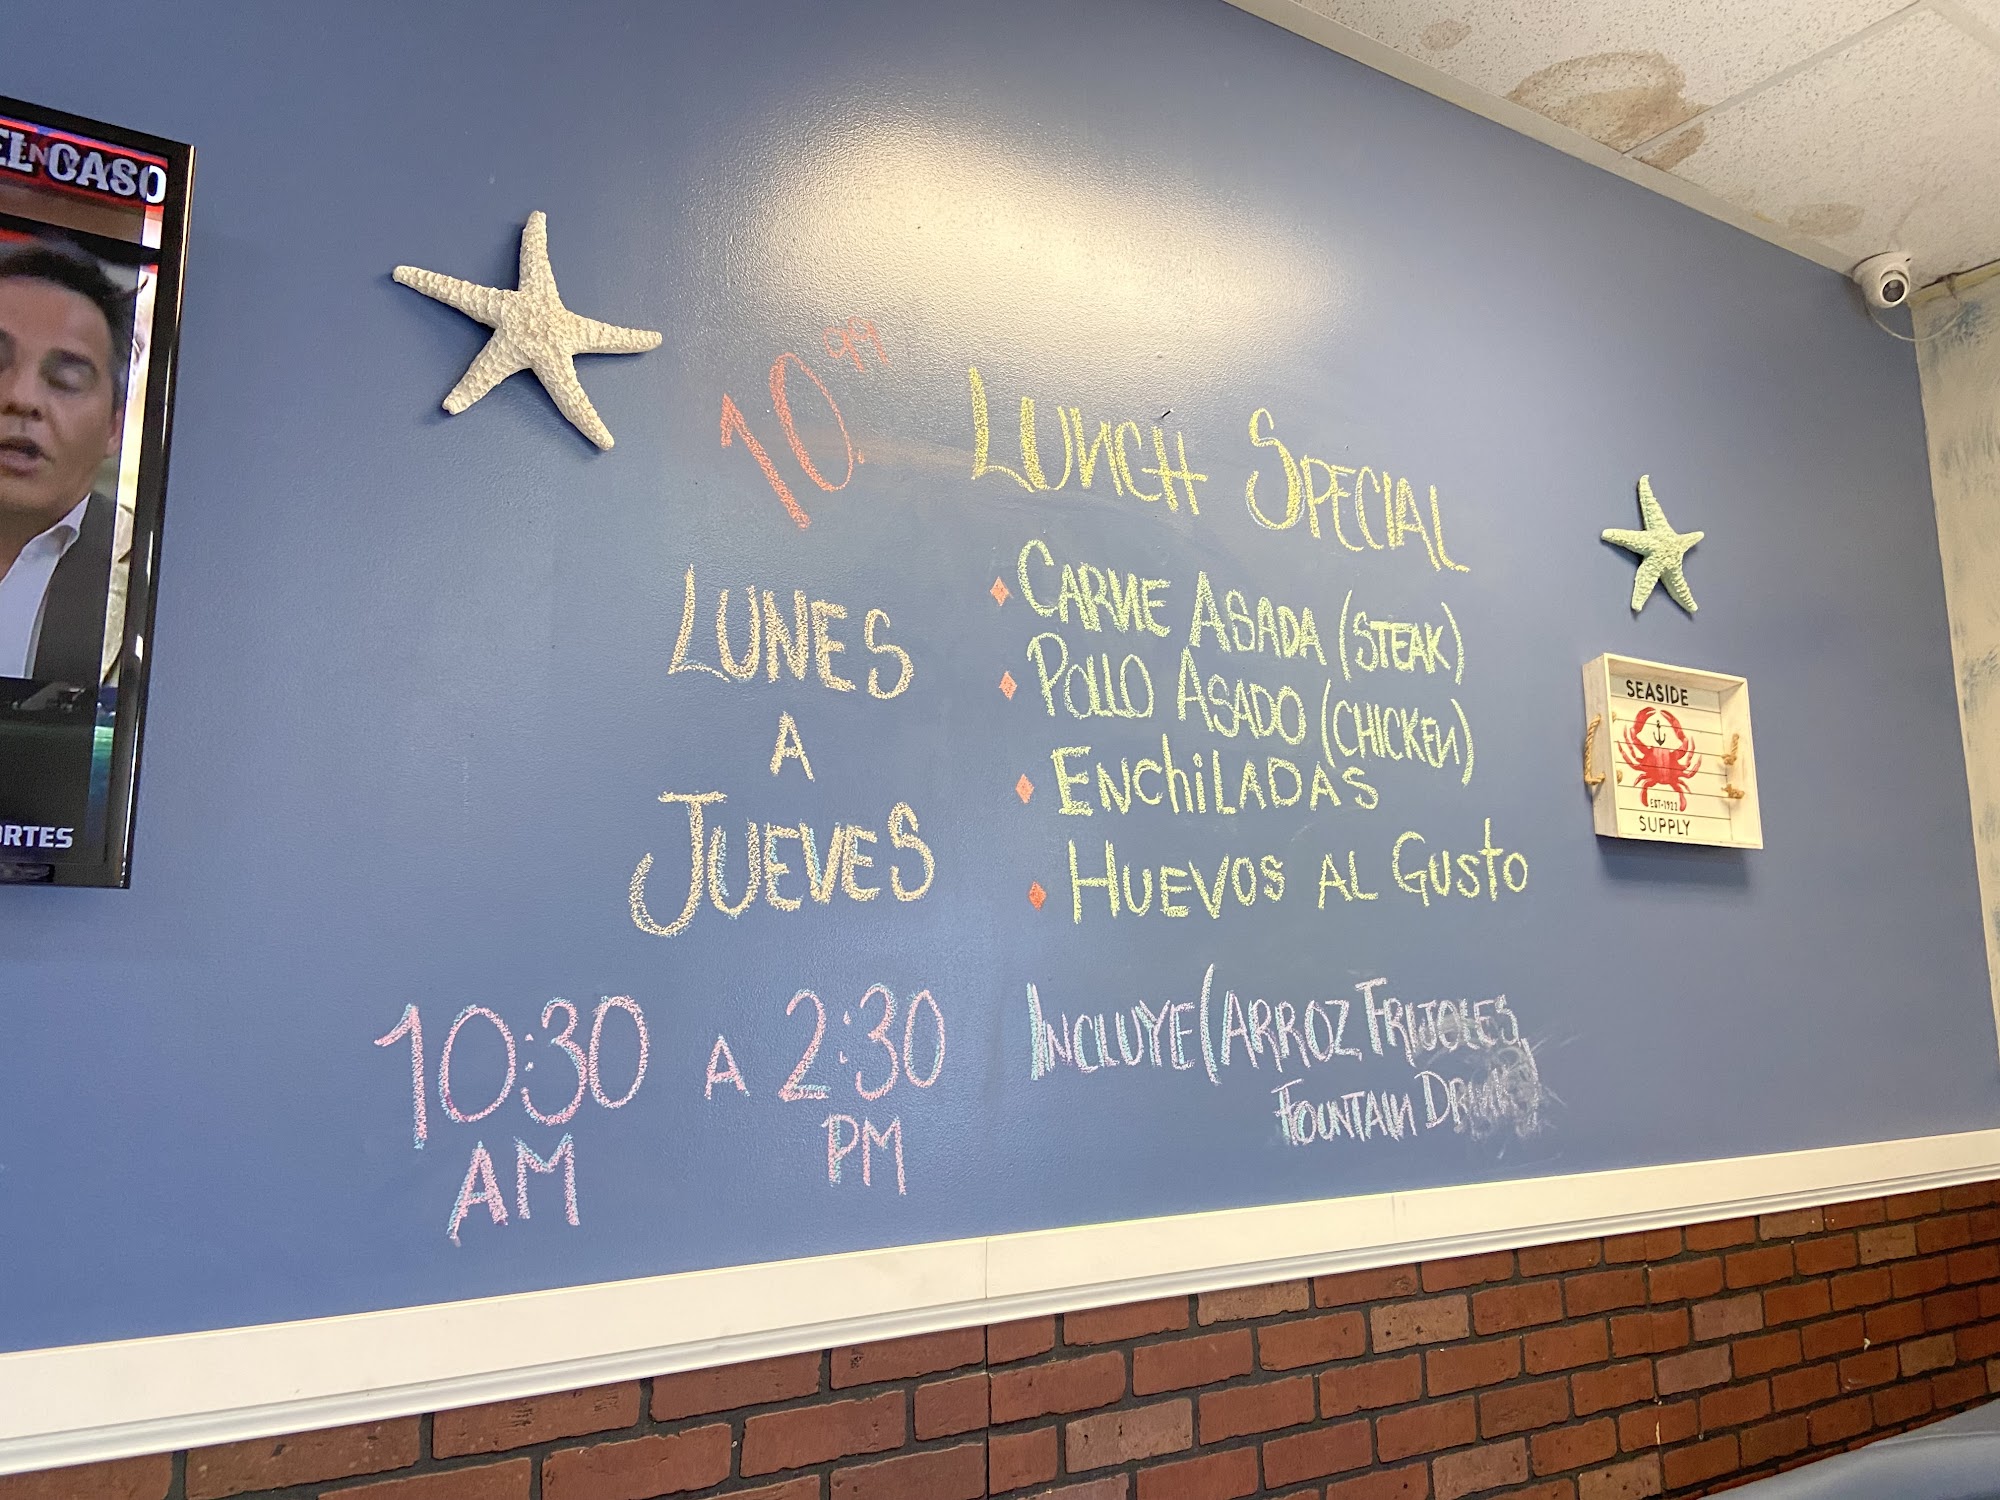 EL CASO
ORTES
10.99
LUNCH SPECIAL
LUNES
A
JUEVES
CARNE ASADA (STEAK)
POLLO ASADO (CHICKEN)
ENCHILADAS
HUEVOS AL GUSTO
10:30 A 2:30
AM PM
INCLUYE (ARROZ FRIJOLES,
FOUNTAIN DRINK)
SEASIDE
EST-1922
SUPPLY